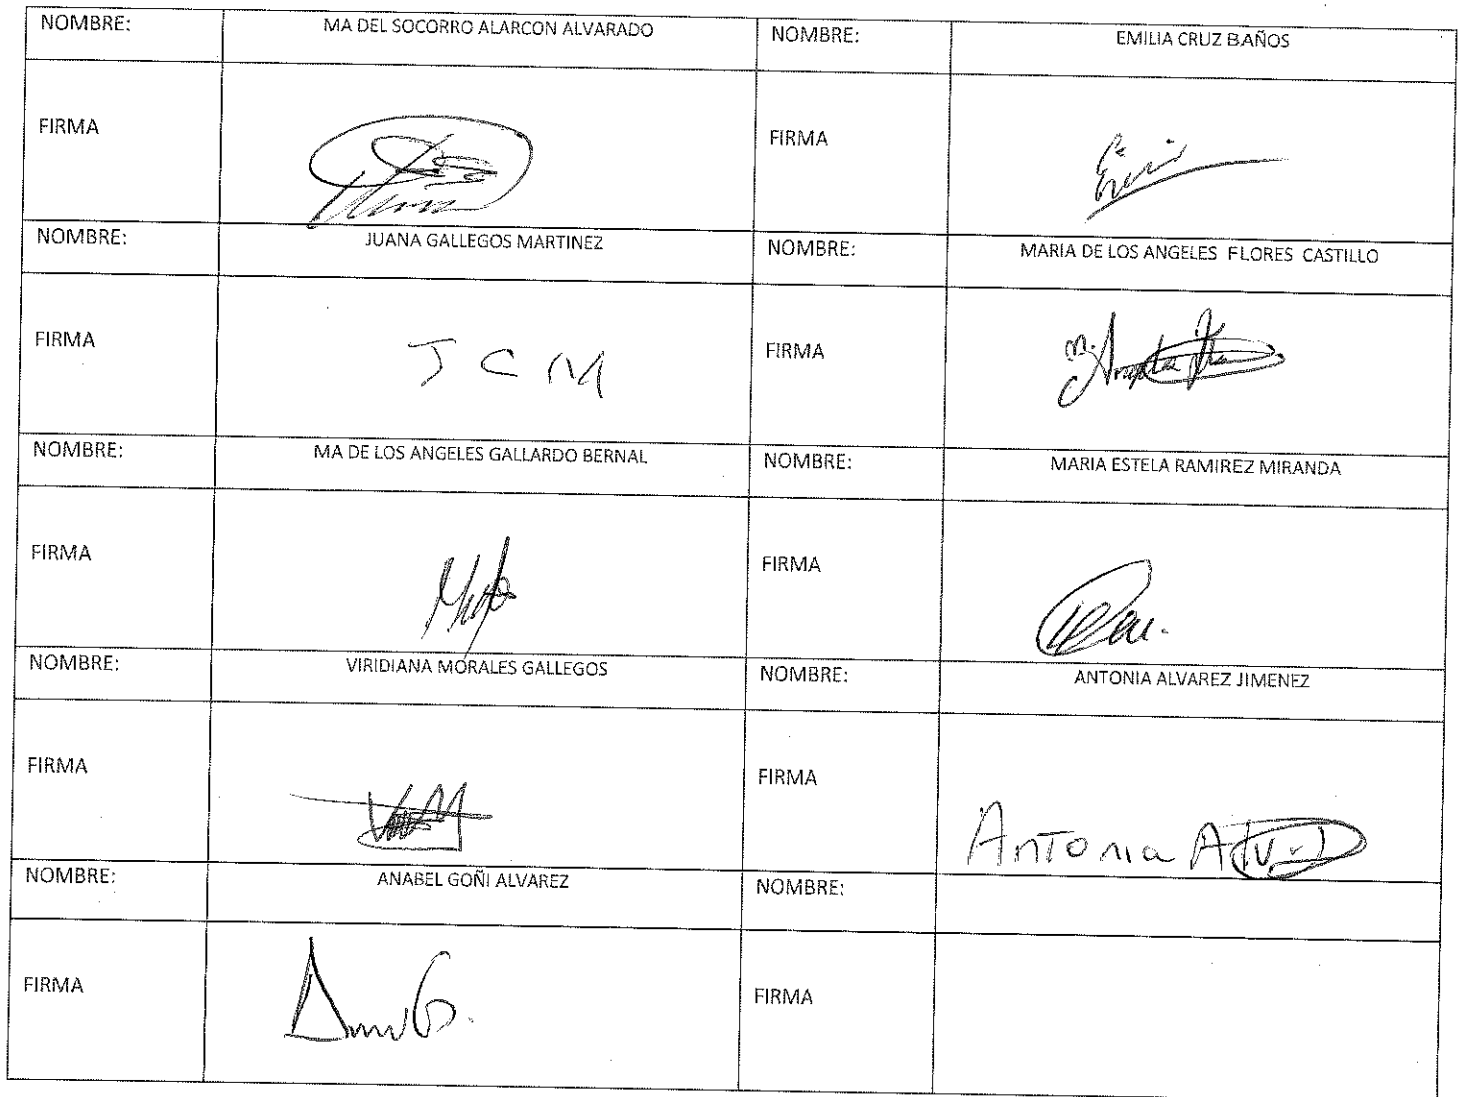 NOMBRE: MA DEL SOCORRO ALARCON ALVARADO NOMBRE: EMILIA CRUZ BAÑOS
FIRMA FIRMA
NOMBRE: JUANA GALLEGOS MARTINEZ NOMBRE: MARIA DE LOS ANGELES FLORES CASTILLO
FIRMA J C M FIRMA
NOMBRE: MA DE LOS ANGELES GALLARDO BERNAL NOMBRE: MARIA ESTELA RAMIREZ MIRANDA
FIRMA FIRMA
NOMBRE: VIRIDIANA MORALES GALLEGOS NOMBRE: ANTONIA ALVAREZ JIMENEZ
FIRMA FIRMA Antonia
NOMBRE: ANABEL GOÑI ALVAREZ NOMBRE:
FIRMA FIRMA